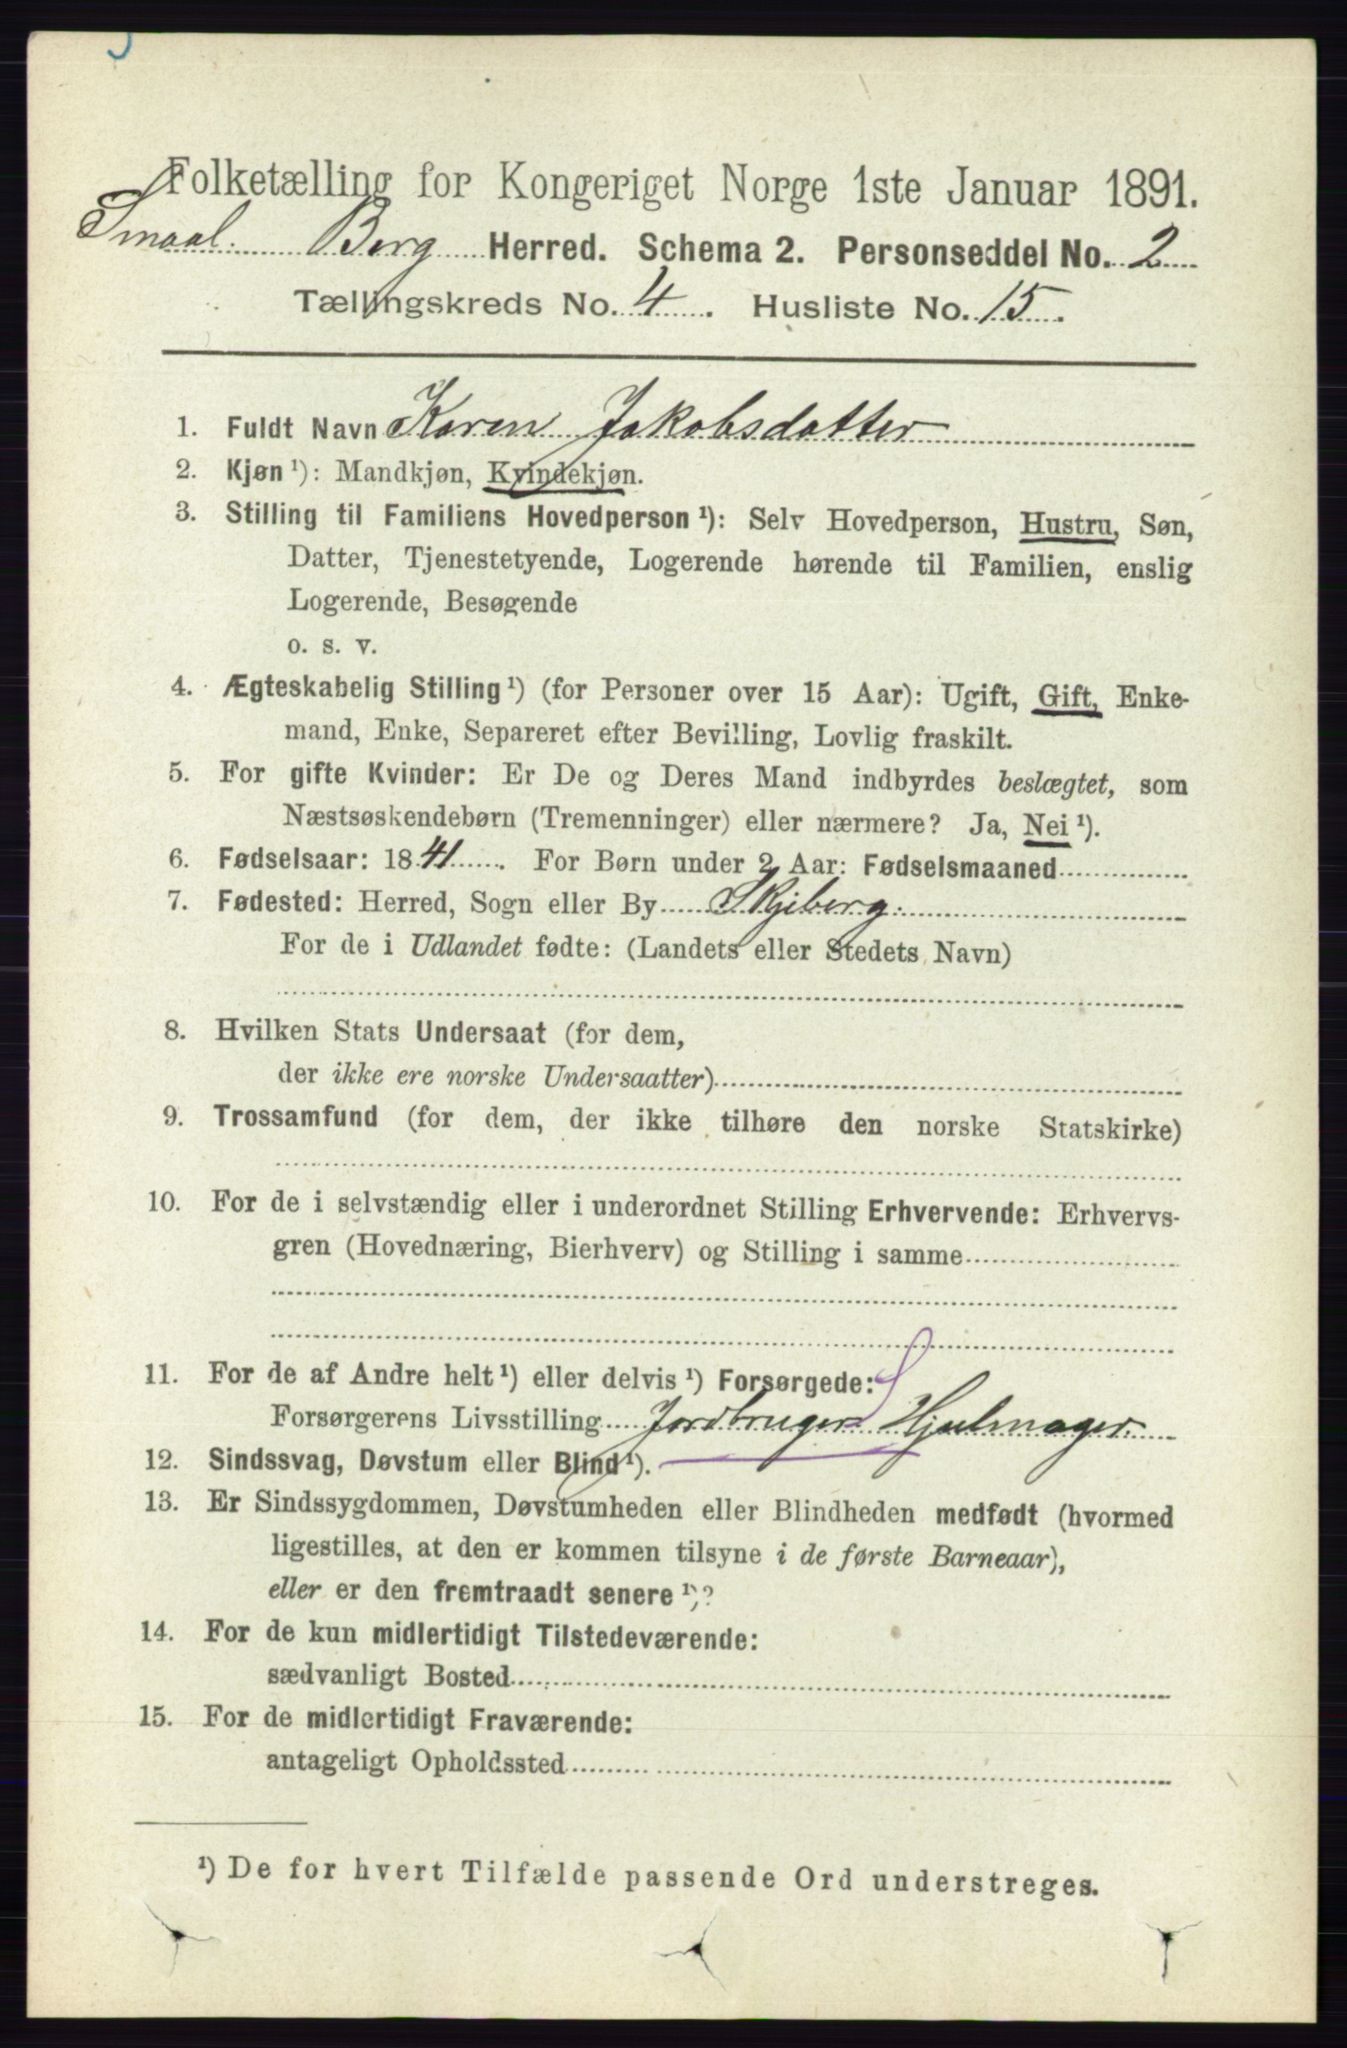 Folketælling for Kongeriget Norge 1ste Januar 1891.
Smaal. Berg Herred. Schema 2. Personseddel No. 2
Tællingskreds No. 4. Husliste No. 15.
1. Fuldt Navn Karen Jakobsdatter
2. Kjøn¹): Mandkjøn, Kvindekjøn.
3. Stilling til Familiens Hovedperson¹): Selv Hovedperson, Hustru, Søn,
Datter, Tjenestetyende, Logerende hørende til Familien, enslig
Logerende, Besøgende
o. s. v.
4. Ægteskabelig Stilling¹) (for Personer over 15 Aar): Ugift, Gift, Enke-
mand, Enke, Separeret efter Bevilling, Lovlig fraskilt.
5. For gifte Kvinder: Er De og Deres Mand indbyrdes beslægtet, som
Næstsøskendebørn (Tremenninger) eller nærmere? Ja, Nei¹).
6. Fødselsaar: 1841. For Børn under 2 Aar: Fødselsmaaned
7. Fødested: Herred, Sogn eller By Skjeberg.
For de i Udlandet fødte: (Landets eller Stedets Navn)
8. Hvilken Stats Undersaat (for dem,
der ikke ere norske Undersaatter)
9. Trossamfund (for dem, der ikke tilhøre den norske Statskirke)
10. For de i selvstændig eller i underordnet Stilling Erhvervende: Erhvervs-
gren (Hovednæring, Bierhverv) og Stilling i samme
11. For de af Andre helt¹) eller delvis¹) Forsørgede:
Forsørgerens Livsstilling Jordbruger Hjulmager.
12. Sindssvag, Døvstum eller Blind¹).
13. Er Sindssygdommen, Døvstumheden eller Blindheden medfødt (hvormed
ligestilles, at den er kommen tilsyne i de første Barneaar),
eller er den fremtraadt senere¹)?
14. For de kun midlertidigt Tilstedeværende:
sædvanligt Bosted
15. For de midlertidigt Fraværende:
antageligt Opholdssted
¹) De for hvert Tilfælde passende Ord understreges.